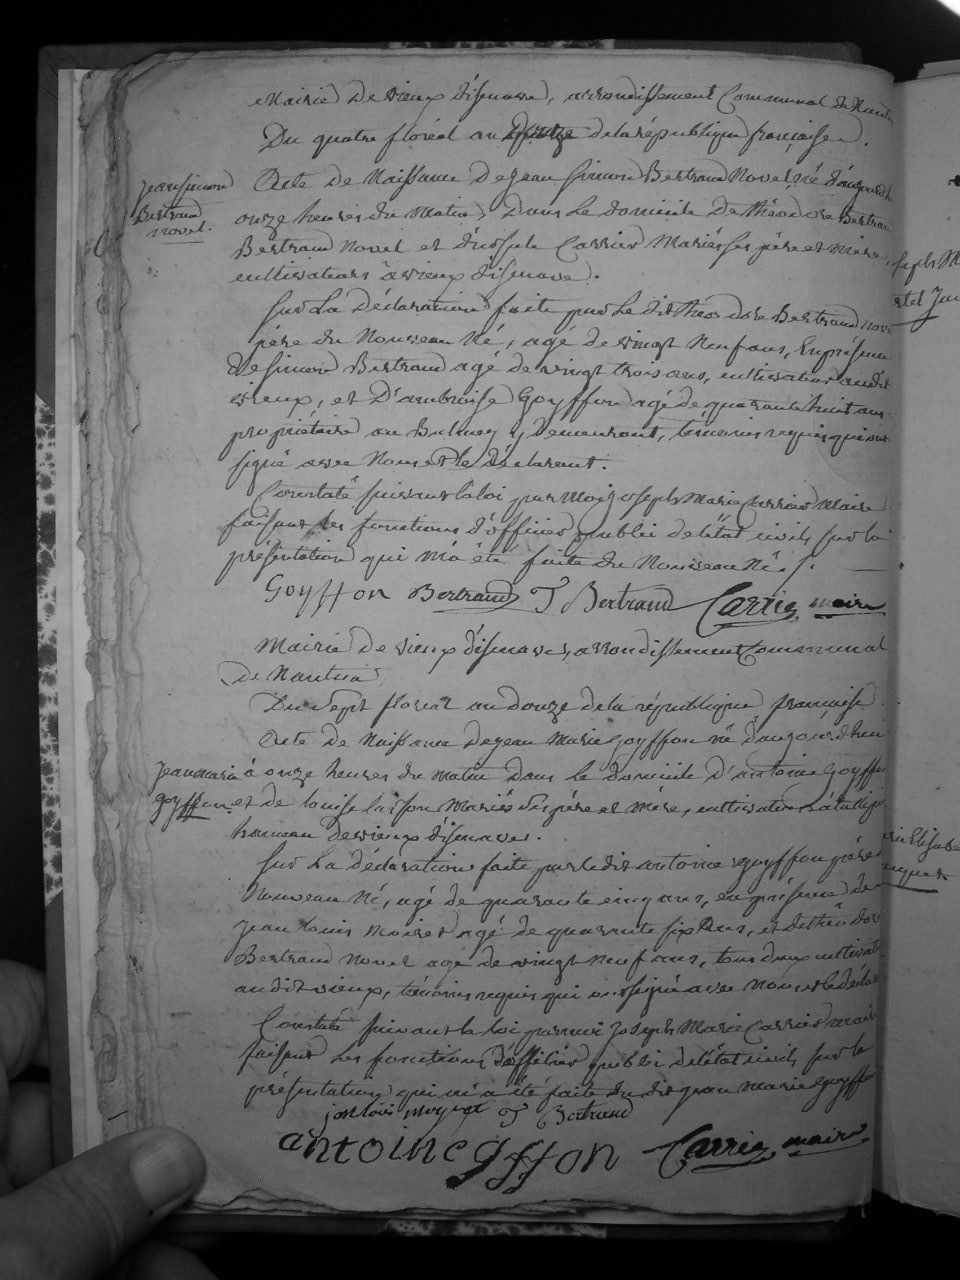 Mairie de vieux d'isenave, arrondissement Communal de Nantua
Du quatre floréal an douze de la république françoise.
jean simon
Bertrand
novel.
Acte de Naissance de jean simon Bertrand Novel, né d'aujourd'h
onze heures du matin, dans Le domicile De théodore Bertran
Bertrand novel et d'ursule Carrier Mariés ses père et mère,
cultivateurs à vieux d'isenave.
Sur La Déclaration faite par Le dit théodore Bertrand nov
père du Nouveau Né, agé de vingt Neuf ans, En présence
De simon Bertrand agé de vingt trois ans, cultivateur audit
vieux, et D'ambroise Goyffon agé de quarante huit ans
propriétaire au Balmey y Demeurant, témoins requis qui ont
signé avec Nous et le déclarant.
Constaté suivant la loi par Moi joseph Marie Carrier Maire
faisant les fonctions d'officier publi de l'état civil, sur la
présentation qui m'a été faite du Nouveau Né.
Goyffon Bertrand T Bertrand Carrier maire
Mairie de vieux d'isenave, arrondissement Communal
de Nantua,
Du sept floréal an douze de la république françoise
Acte de Naissance de jean Marie Goyffon né d'aujourd'hui
jean marie
goyffon.
à onze heures du matin dans le domicile d'antoine Goyffo
et de louise Mariés ses père et mère, cultivateurs
hameau de vieux d'isenave.
Sur La déclaration faite par le dit antoine goyffon père d
Nouveau Né, agé de quarante cinq ans, en présence de
jean louis agé de quarante six ans, et de théodor
Bertrand novel agé de vingt neuf ans, tous deux cultivate
audit vieux, témoins requis qui ont signé avec nous et le déclar
Constaté suivant la loi par moi joseph Marie Carrier maire
faisant Les fonctions d'officier publi de l'état civil, sur la
présentation qui m'a été faite du dit jean marie goyffon
jan loüis T Bertrand
antoine gffon Carrier maire